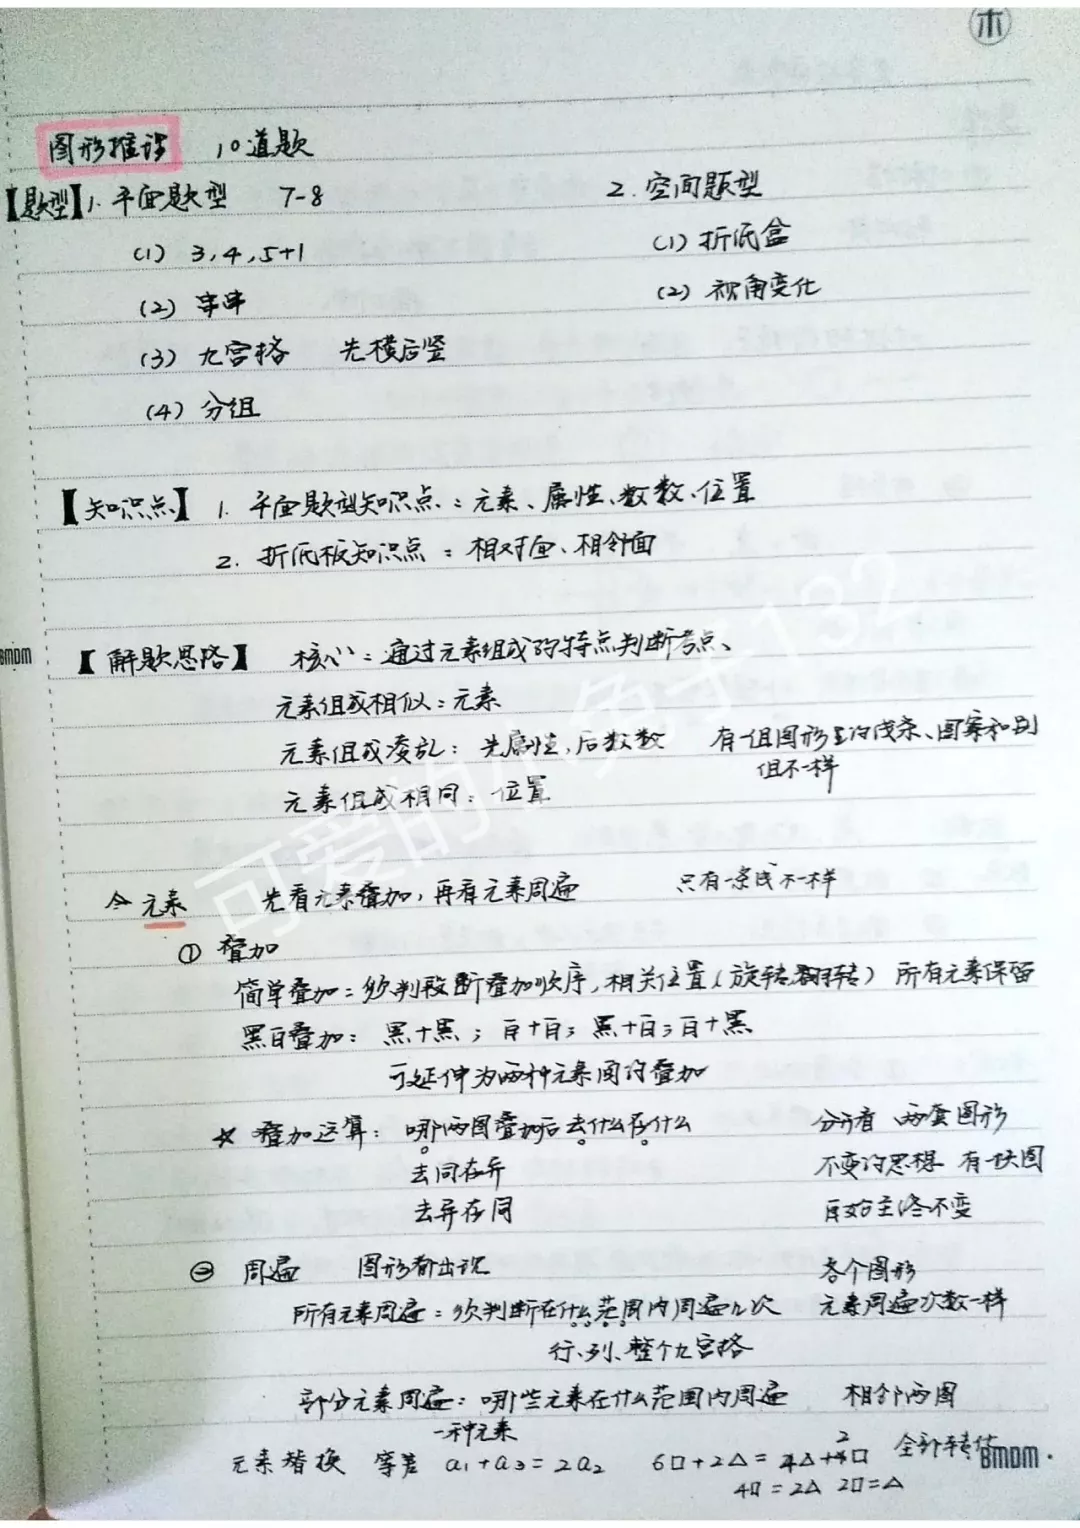 木
图形推理 10道题
【题型】1. 平面题型 7-8 2. 空间题型
(1) 3,4,5+1 (1) 折底盒
(2) 串串 (2) 视角变化
(3) 九宫格 先横后竖
(4) 分组
【知识点】 1. 平面题型知识点：元素、属性、数数、位置
2. 折底板知识点：相对面、相邻面
BMDM
【解题思路】 核心：通过元素组成的特点判断考点、
元素组成相似：元素
元素组成凌乱：先属性,后数数 有一组图形里的线条、图案和别
组不一样
元素组成相同：位置
可爱的小兔子132
元素 先看元素叠加，再看元素周遍 只有一条线不一样
① 叠加
简单叠加：须判断叠加顺序，相关位置(旋转、翻转) 所有元素保留
黑白叠加：黑+黑；白+白；黑+白；白+黑
可延伸为两种元素间的叠加
☆ 叠加运算：哪两图叠加后去什么存什么 分开看 两套图形
去同存异 不变的思想 有一块图
去异存同 自始至终不变
② 周遍 图形都出现 各个图形
所有元素周遍：须判断在什么范围内周遍几次 元素周遍次数一样
行、列、整个九宫格
部分元素周遍：哪些元素在什么范围内周遍 相邻两图
一种元素
元素替换 等差 a₁+a₃=2a₂ 6□+2△=4△+2□ 全部转化
4□=2△ 2□=△
BMDM